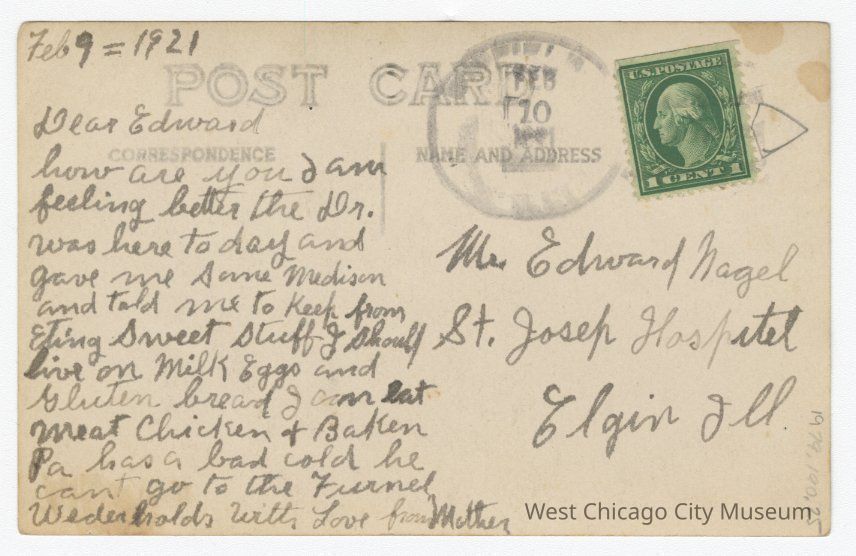 Feb 9 = 1921
POST CARD
Dear Edward
CORRESPONDENCE
how are you I am
feeling better the Dr.
was here to day and
gave me Some Medison
and told me to Keep from
Eting Sweet Stuff I Should
live on Milk Eggs and
Gluten bread I can eat
meat Chicken + Baken
Pa has a bad cold he
can't go to the Furnel
Wederholds With Love from Mother
NAME AND ADDRESS
FEB
10
U.S. POSTAGE
1 CENT 1
Mr Edward Nagel
St. Josep Hospitel
Elgin Ill
West Chicago City Museum